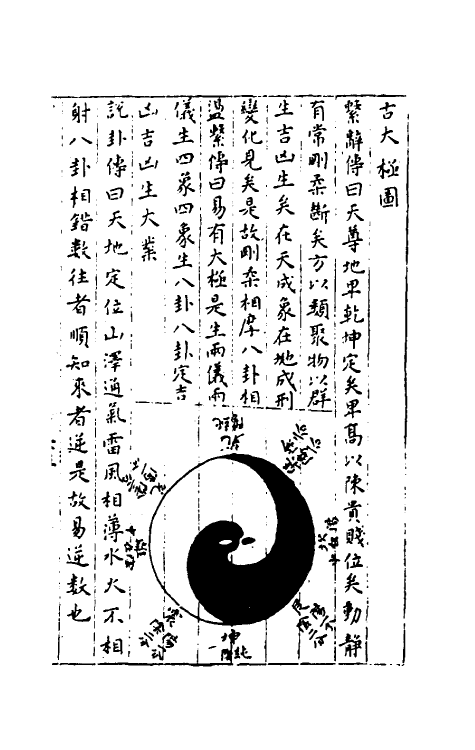 古大極圖
繫辭傳曰天尊地卑乾坤定矣卑髙以陳貴賤位矣動靜
有常剛柔斷矣方以類聚物以群
生吉凶生矣在天成象在地成刑
變化見矣是故剛柔相摩八卦相
盪繫傳曰易有大極是生兩儀兩
儀生四象四象生八卦八卦定吉
凶吉凶生大業
說卦傳曰天地定位山澤通氣雷風相薄水火不相
射八卦相錯數往者順知來者逆是故易逆數也
坤純陰